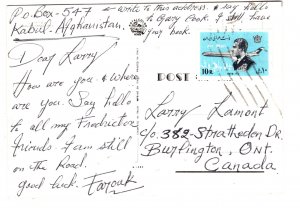 P.O.Box-547 ← write to this address. & say hello
Kabul-Afghanistan.
to Gary Cook. I still have
your book.
Dear Larry
How are you & where
are you. Say hello
to all my Fredricton
friends I am still
on the Road.
good luck. Farouk
POST
10R
Larry Lamont
c/o. 382-Strathedon Dr.
Burlington, Ont.
Canada